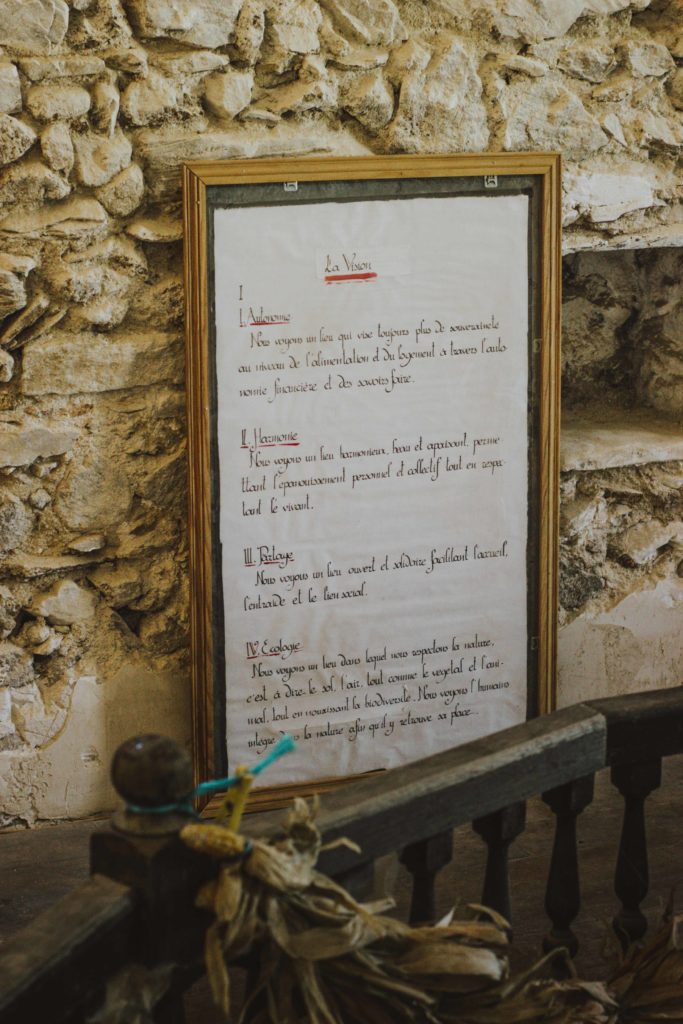 La Vision
I
I. Autonomie
Nous voyons un lieu qui vise toujours plus de souveraineté
au niveau de l'alimentation et du logement à travers l'auto
nomie financière et des savoirs faire.
II. Harmonie
Nous voyons un lieu harmonieux, beau et apaisant, perme-
ttant l'épanouissement personnel et collectif tout en respec-
tant lé vivant.
III. Partage
Nous voyons un lieu ouvert et solidaire facilitant l'accueil,
l'entraide et le lien social.
IV. Ecologie
Nous voyons un lieu dans lequel nous respectons la nature,
c'est à dire le sol, l'air, tout comme le végétal et l'ani-
mal, tout en nourissant la biodiversité. Nous voyons l'humain
intégré dans la nature afin qu'il y retrouve sa place...